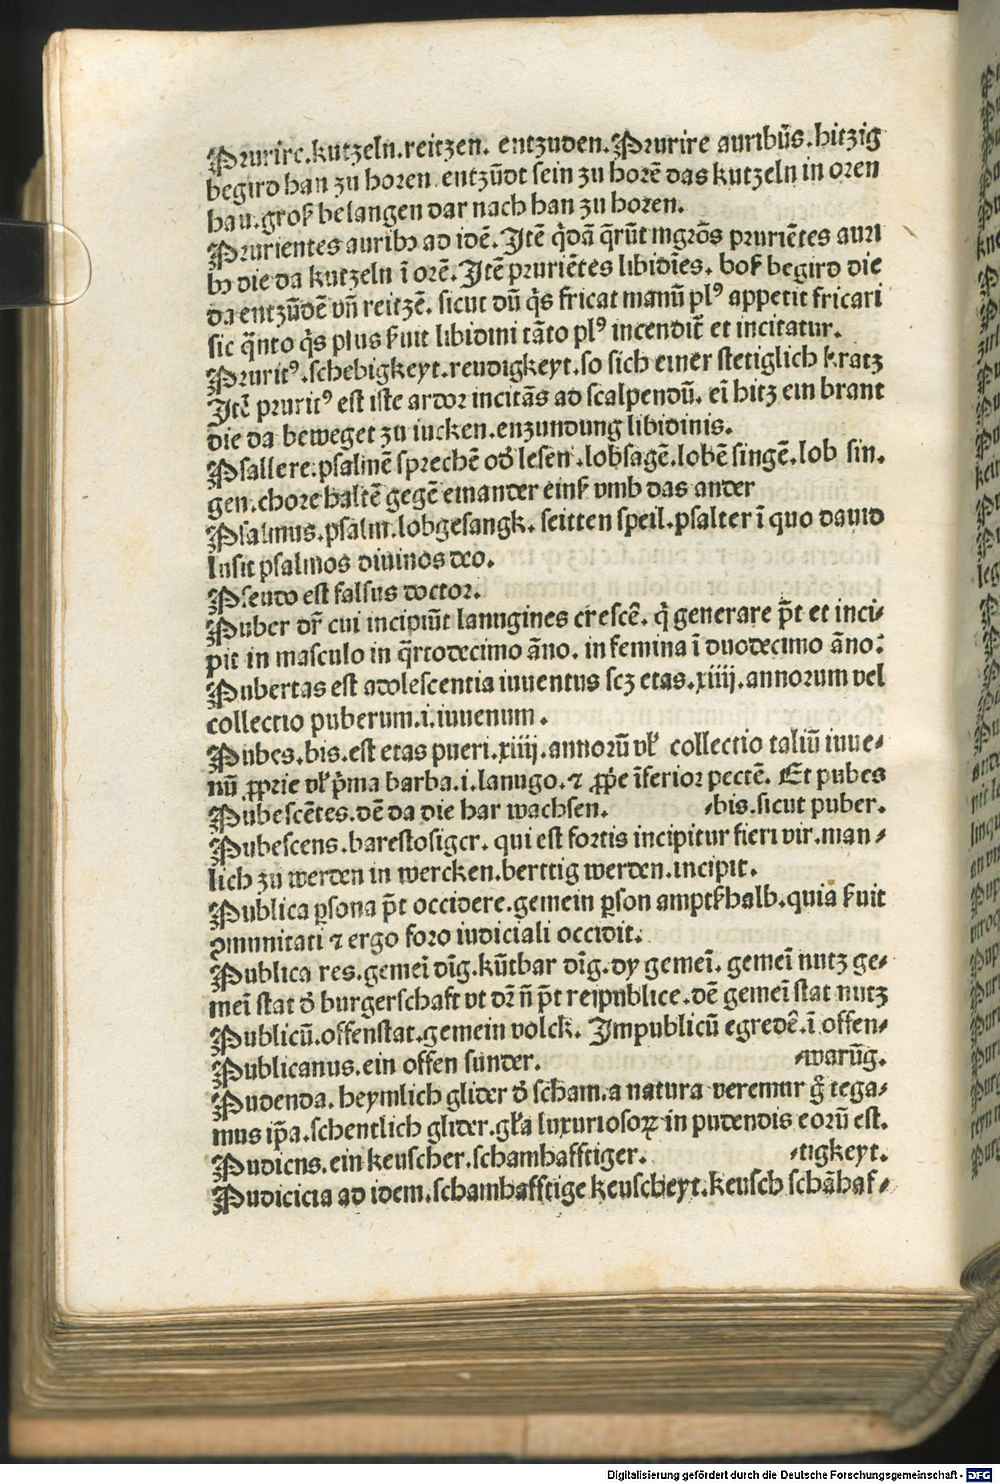 Prurire.kutzeln.reitzen. entzuden.Prurire auribūs.hitzig
begird han zu horen entzūdt sein zu horē das kutzeln in oren
hau.groſ belangen dar nach han zu horen.
Prurientes auribꝫ ad idē.Itē q̄dā q̄rūt mgrōs pruriētes auri
bꝫ die da kutzeln ī orē.Itē pruriētes libidīes. boſ begird die
da entzūdē vñ reitzē. sicut dū q̇s fricat manū plꝰ appetit fricari
sic q̄nto q̇s plus ẜuit libidini tāto plꝰ incendit̄ et incitatur.
Pruritꝰ.schebigkeyt.reudigkeyt.so sich einer stetiglich kratz
Itē pruritꝰ est iste ardor incitās ad scalpendū. eī hitz ein brant
die da beweget zu iucken.enzundung libidinis.
Psallere.psalmē sprechē od̄ lesen.lobsagē.lobē singē.lob sin.
gen.chore haltē gegē einander einſ vmb das ander
Psalmus.psalm.lobgesangk. seitten speil.psalter ī quo dauid
lusit psalmos diuinos deo.
Pseudo est falsus doctor.
Puber dr̄ cui incipiūt lanugines crescē. q̇ generare p̄t et inci-
pit in masculo in q̄rtodecimo āno. in femina ī duodecimo āno:
Pubertas est adolescentia iuuentus scꝫ etas.xiiij.annorum vel
collectio puberum.i.iuuenum.
Pubes.bis.est etas pueri.xiiij.annorū vł collectio taliū iuue-
nū ꝓprie vł p̄ma barba.i.lanugo.⁊ ꝓpe īferior pectē. Et pubes
Pubescētes.dē da die har wachsen. -bis.sicut puber.
Pubescens.barestosiger. qui est fortis incipitur fieri vir.man-
lich zu werden in wercken.berttig werden.incipit.
Publica ꝑsona p̄t occidere.gemein ꝑson amptſhalb.quia ẜuit
ꝯmunitati ⁊ ergo foro iudiciali occidit.
Publica res.gemeī dīg.kūtbar dīg.dy gemeī. gemeī nutz ge-
meī stat d̄ burgerschaft vt dr̄ ñ p̄t reipublice.dē gemeī stat nutz
Publicū.offenstat.gemein volck. Impublicū egredē.ī offen-
Publicanus.ein offen sunder. -warūg.
Pudenda. heymlich glider d̄ scham.a natura veremur g̊ tega-
mus ip̄a.schentlich glider.gła luxuriosoꝝ in pudendis eorū est.
Pudicus.ein keuscher.schamhafftiger. -tigkeyt.
Pudicicia ad idem.schamhafftige keuscheyt.keusch schāhaf-
Digitalisierung gefördert durch die Deutsche Forschungsgemeinschaft - DFG